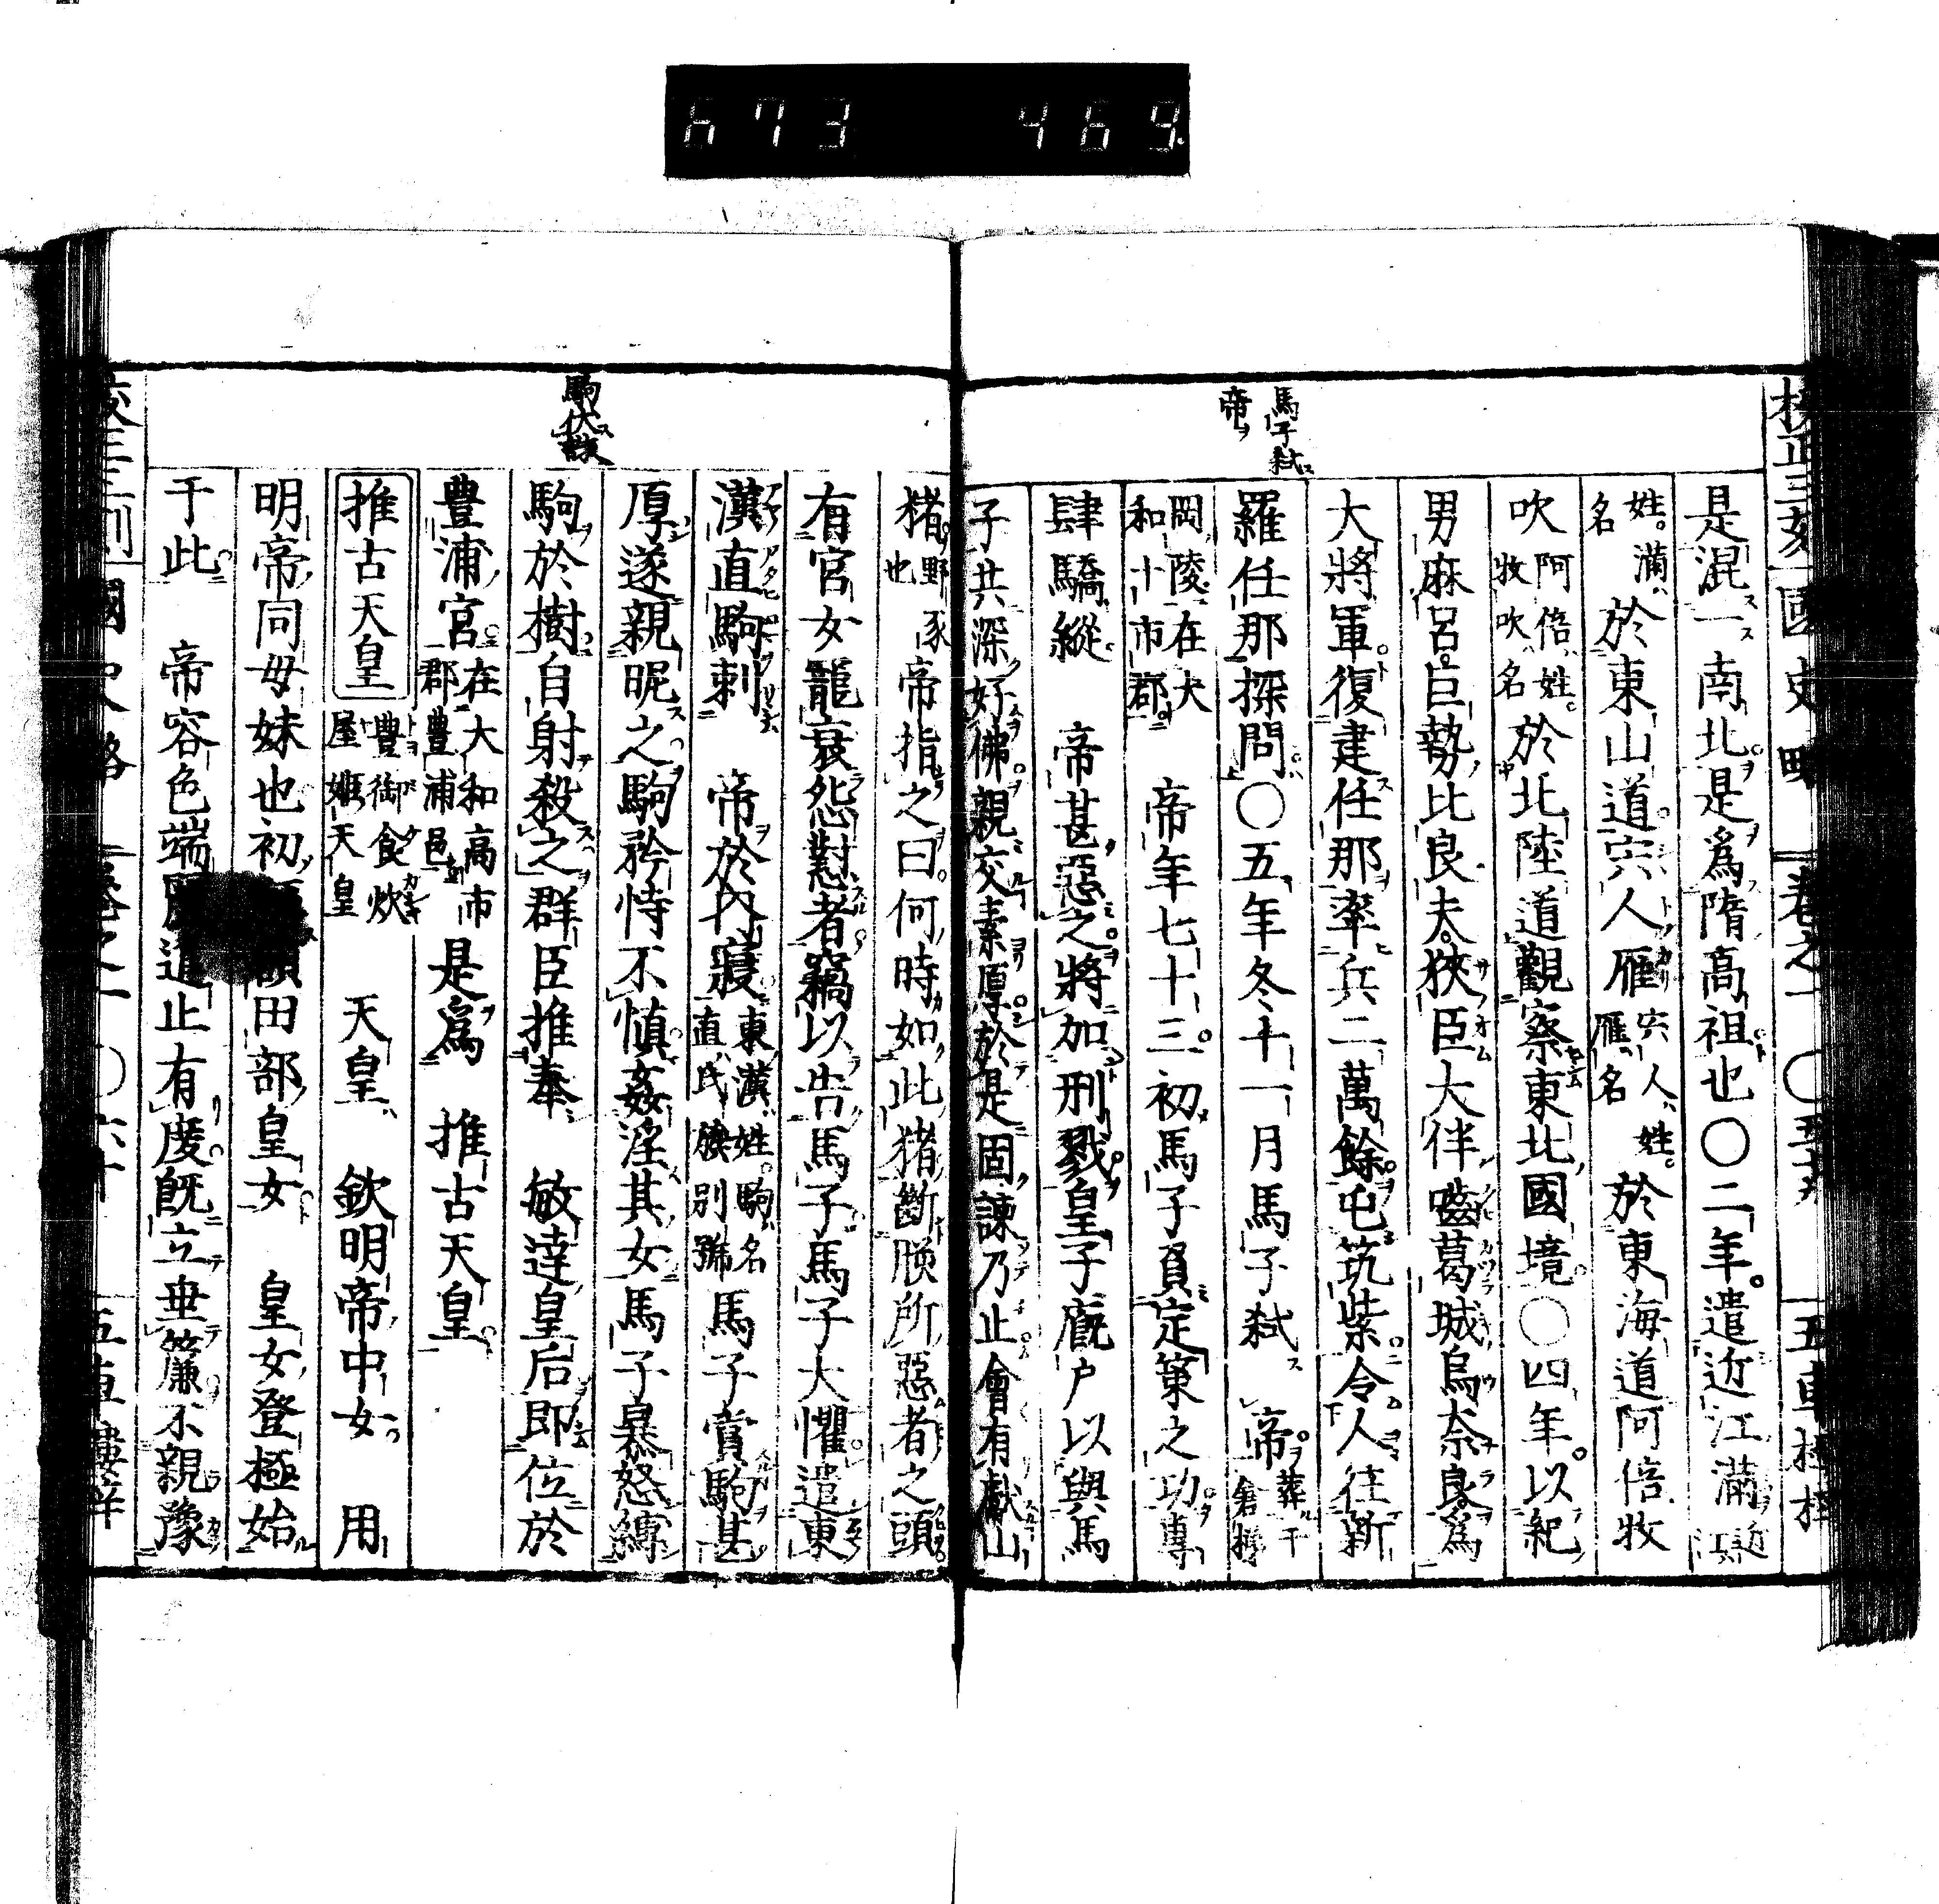 673 469
國史略 卷之一 〇五十九 五車樓
馬子弑
帝
是混一南北是爲隋高祖也〇二年遣近江滿近江
姓滿名於東山道宍人雁宍人姓雁名於東海道阿倍牧
吹阿倍姓牧吹名於北陸道觀察東北國境〇四年以紀
男麻呂巨勢比良夫狹臣大伴嚙葛城烏奈良爲
大將軍復建任那率兵二萬餘屯筑紫令人往新
羅任那探問〇五年冬十一月馬子弑 帝葬于倉梯
岡陵在大和十市郡 帝年七十三初馬子負定策之功專
肆驕縱 帝甚惡之將加刑戮皇子廐戸以與馬
子共深好佛親交素厚於是固諫乃止會有獻山
駒伏誅
猪野豕也帝指之曰何時如此猪斷朕所惡者之頭
有官女寵衰怨懟者竊以告馬子馬子大懼遣東
漢直駒刺 帝於內寢東漢姓駒名直氏族別號馬子賞駒甚
厚遂親昵之駒矜恃不愼姦淫其女馬子暴怒縛
駒於樹自射殺之群臣推奉 敏達皇后即位於
豊浦宮在大和高市郡豊浦邑是爲 推古天皇
推古天皇豐御食炊屋姬天皇 天皇 欽明帝中女 用
明帝同母妹也初田部皇女 皇女登極始
于此 帝容色端進止有度旣立垂簾不親豫
國史略 卷之一 〇六十 五車樓